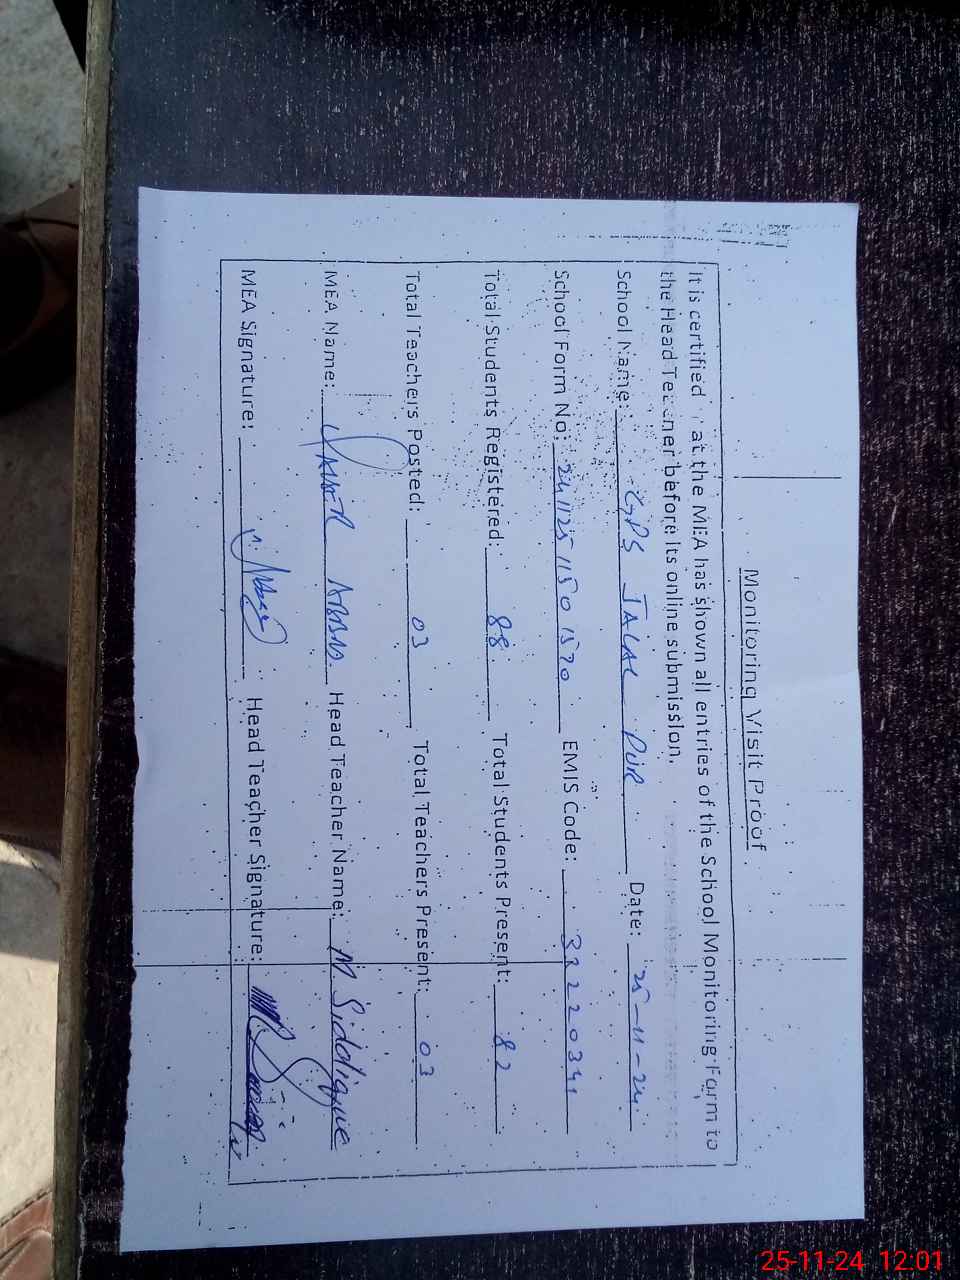 Monitoring Visit Proof
it is certified at the MEA has shown all entries of the School Monitoring Form to
the Head Teacher before its online submission.
School Name: GPS JALAL PUR Date: 25-11-24
School Form No: 24112511501570 EMIS Code: 32220341
Total Students Registered: 88 Total Students Present: 82
Total Teachers Posted: 03 Total Teachers Present: 03
MEA Name: ABBAS Head Teacher Name: M Siddique
MEA Signature: Head Teacher Signature:
25-11-24 12:01